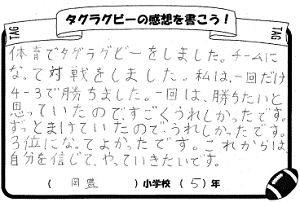 タグラグビーの感想を書こう！
TAG
TAG
体育でタグラグビーをしました。チームに
なって対戦をしました。私は、一回だけ
4-3で勝ちました。一回は、勝ちたいと
思っていたのですごくうれしかったです。
ずっとまけていたので、うれしかったです。
3位になってよかったです。これからは
自分を信じて、やっていきたいです。
（ 岡豊 ）小学校（ 5 ）年